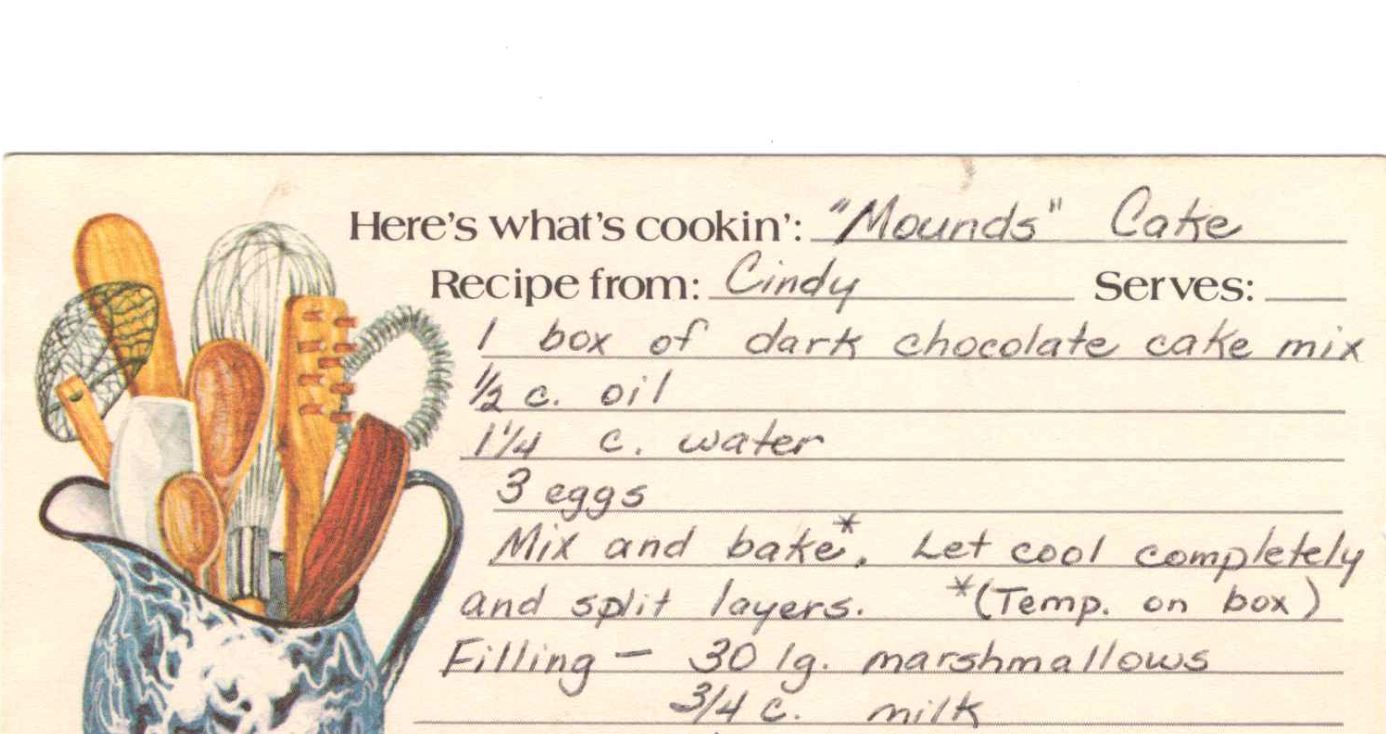 Here's what's cookin': "Mounds" Cake
Recipe from: Cindy Serves:
1 box of dark chocolate cake mix
1/2 c. oil
1 1/4 c. water
3 eggs
Mix and bake*. Let cool completely
and split layers. *(Temp. on box)
Filling – 30 lg. marshmallows
3/4 c. milk